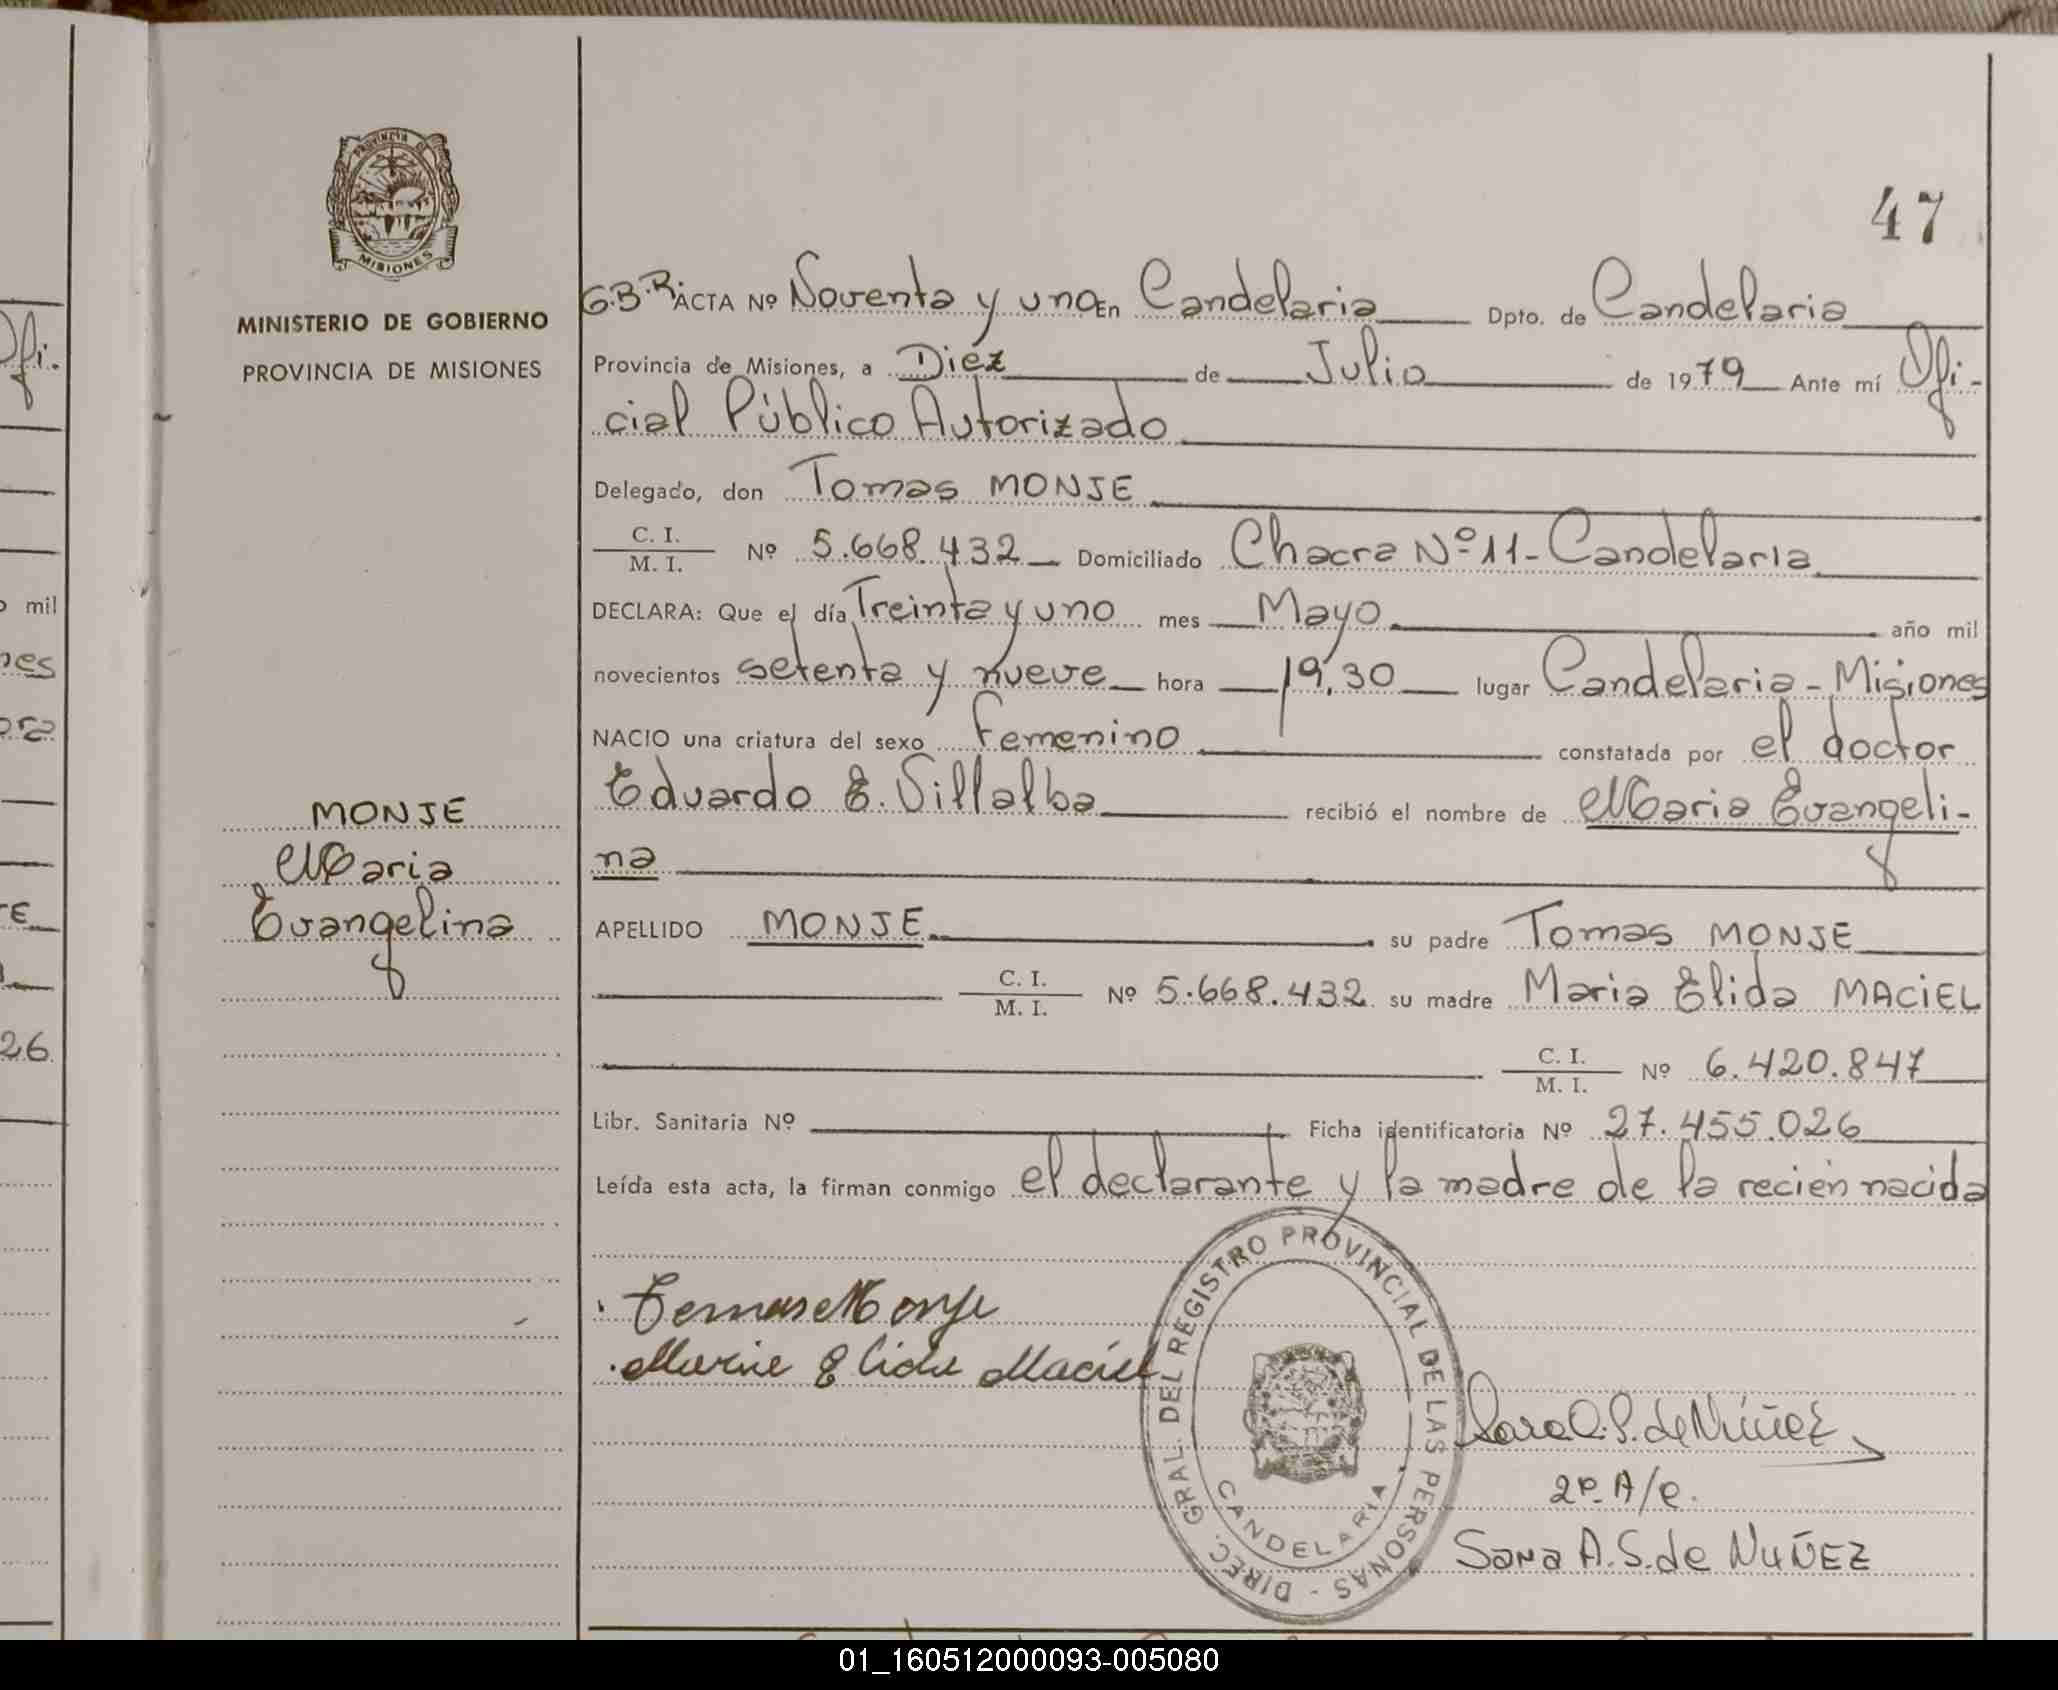 PROVINCIA DE
MISIONES
MINISTERIO DE GOBIERNO
PROVINCIA DE MISIONES
MONJE
Maria
Evangelina
47
G.B.R. ACTA Nº Noventa y uno En Candelaria Dpto. de Candelaria
Provincia de Misiones, a Diez de Julio de 1979 Ante mí Ofi-
cial Público Autorizado
Delegado, don Tomas MONJE
C. I.
M. I. Nº 5.668.432 Domiciliado Chacra Nº 11 - Candelaria
DECLARA: Que el día Treinta y uno mes Mayo año mil
novecientos setenta y nueve hora 19,30 lugar Candelaria - Misiones
NACIO una criatura del sexo Femenino constatada por el doctor
Eduardo E. Villalba recibió el nombre de Maria Evangeli-
na
APELLIDO MONJE su padre Tomas MONJE
C. I.
M. I. Nº 5.668.432 su madre Maria Elida MACIEL
C. I.
M. I. Nº 6.420.847
Libr. Sanitaria Nº Ficha identificatoria Nº 27.455.026
Leída esta acta, la firman conmigo el declarante y la madre de la recién nacida
Tomas Monje
Maria Elida Maciel
DIREC. GRAL. DEL REGISTRO PROVINCIAL DE LAS PERSONAS -
CANDELARIA
Sara A. S. de Núñez
2º A/c.
Sara A. S. de NUÑEZ
Ofi.
mil
nes
ora
26
01_160512000093-005080